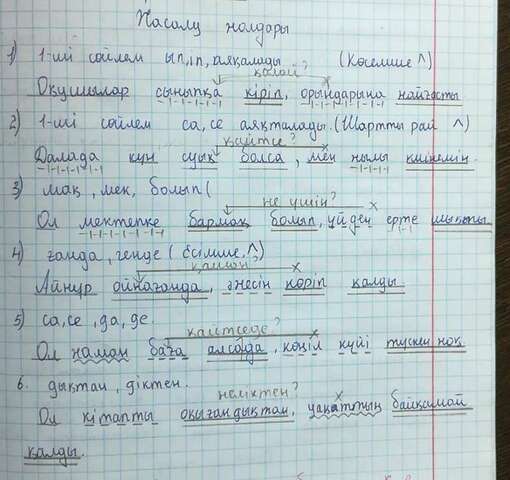 Жасалу жолдары
1) 1-ші сөйлем ып, іп, аяқталады (Көсемше ^)
қалай?
Оқушылар сыныпқа кіріп, орындарына жайғасты
2) 1-ші сөйлем са, се аяқталады. (Шартты рай ^)
қайтсе?
Далада күн суық болса, мен жылы киінемін.
3) мақ, мек, болып (
не үшін?
Ол мектепке бармақ болып, үйден ерте шықты
4) ғанда, генде ( есімше. ^)
қашан?
Айнұр ойнағанда, әнесін көріп қалды
5) са, се, да, де.
қайтседе?
Ол жаман баға алсада, көңіл күйі түскен жоқ
6. дықтан, діктен.
неліктен?
Ол кітапты оқығандықтан, уақыттың байқамай
қалды.